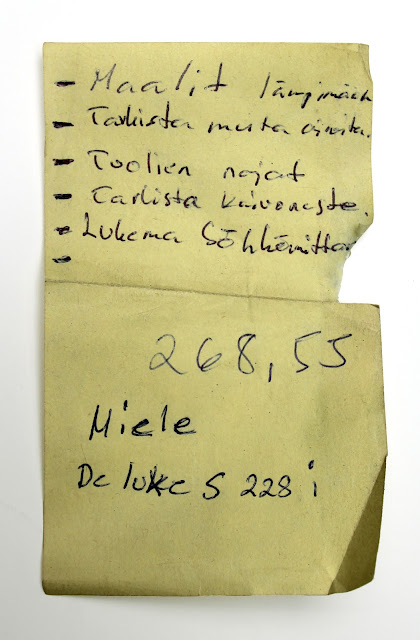 - Maalit lämpimään
- Tarkista musta
- Tuolien nojat
- Tarkista kuivaneste.
- Lukema Sähkömittar
-
268,55
Miele
De luxe S 228 i